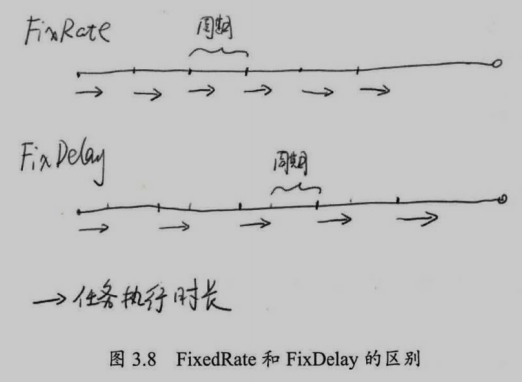 FixRate
周期
FixDelay
周期
→任务执行时长
图 3.8 FixedRate 和 FixDelay 的区别